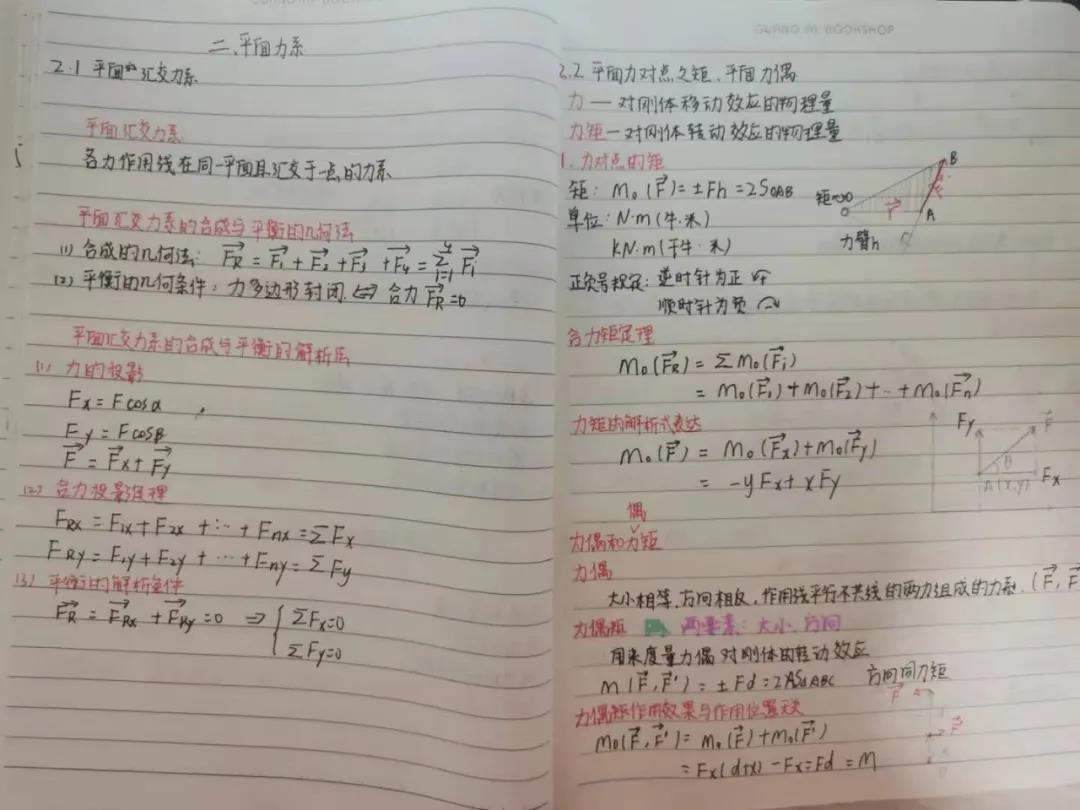 二、平面力系
2.1 平面汇交力系
平面汇交力系
各力作用线在同一平面且汇交于一点的力系
平面汇交力系的合成与平衡的几何法
(1) 合成的几何法: F⃗R = F⃗1 + F⃗2 + F⃗3 + F⃗4 = ∑(i=1→4) F⃗i
(2) 平衡的几何条件: 力多边形封闭 ⇔ 合力 F⃗R=0
平面汇交力系的合成与平衡的解析法
(1) 力的投影
Fx = Fcosα
Fy = Fcosβ
F⃗ = F⃗x + F⃗y
(2) 合力投影定理
FRx = F1x + F2x + … + Fnx = ∑Fx
FRy = F1y + F2y + … + Fny = ∑Fy
(3) 平衡的解析条件
F⃗R = F⃗Rx + F⃗Ry = 0 ⇒ { ∑Fx=0
∑Fy=0
GUANG MI BOOKSHOP
2.2 平面力对点之矩、平面力偶
力 — 对刚体移动效应的物理量
力矩 — 对刚体转动效应的物理量
1. 力对点的矩
矩: Mo(F⃗) = ±Fh = 2S△OAB
单位: N·m (牛·米)
kN·m (千牛·米)
O
r⃗
A
B
力臂h
正负号规定: 逆时针为正
顺时针为负
合力矩定理
Mo(F⃗R) = ∑Mo(F⃗i)
= Mo(F⃗1) + Mo(F⃗2) + … + Mo(F⃗n)
力矩的解析式表达
Mo(F⃗) = Mo(F⃗x) + Mo(F⃗y)
= -yFx + xFy
Fy
F⃗
θ
A(x,y)
Fx
偶
力偶和力矩
力偶
大小相等、方向相反、作用线平行不共线的两力组成的力系. (F⃗, F⃗
力偶矩 两要素: 大小、方向
用来度量力偶对刚体的转动效应
M(F⃗,F⃗') = ±Fd = 2AS△ABC 方向同力矩
力偶矩作用效果与作用位置无关
Mo(F⃗,F⃗') = Mo(F⃗) + Mo(F⃗')
= Fx(d+x) - Fx = Fd = M
F⃗'
F⃗